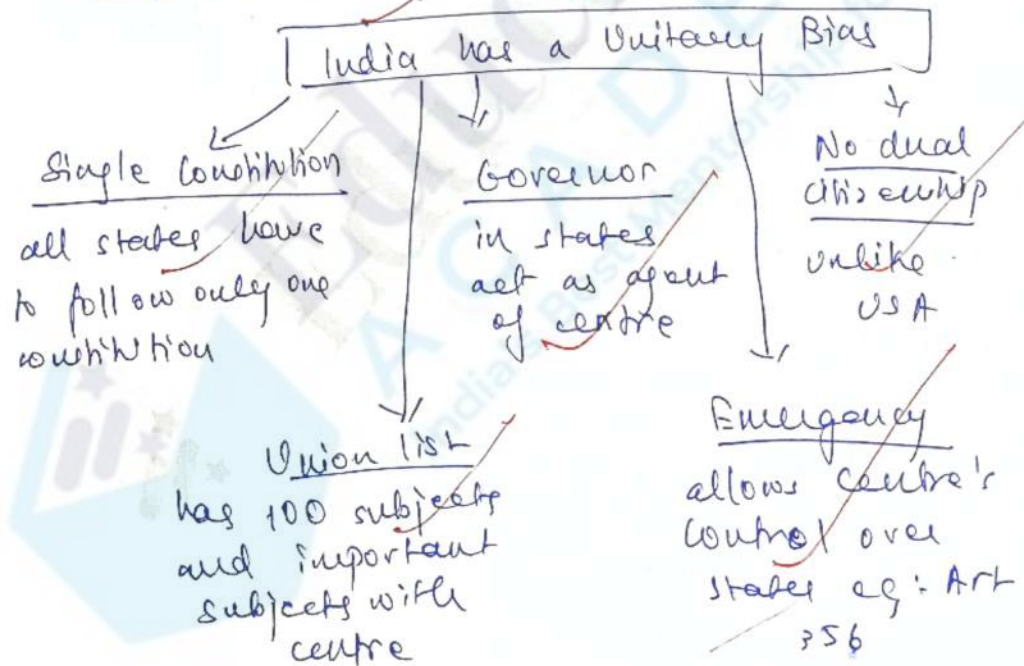 India has a Unitary Bias
Single Constitution
all states have
to follow only one
constitution
Governor
in states
act as agent
of centre
No dual
citizenship
unlike
USA
Union list
has 100 subjects
and important
subjects with
centre
Emergency
allows centre's
control over
states eg: Art
356